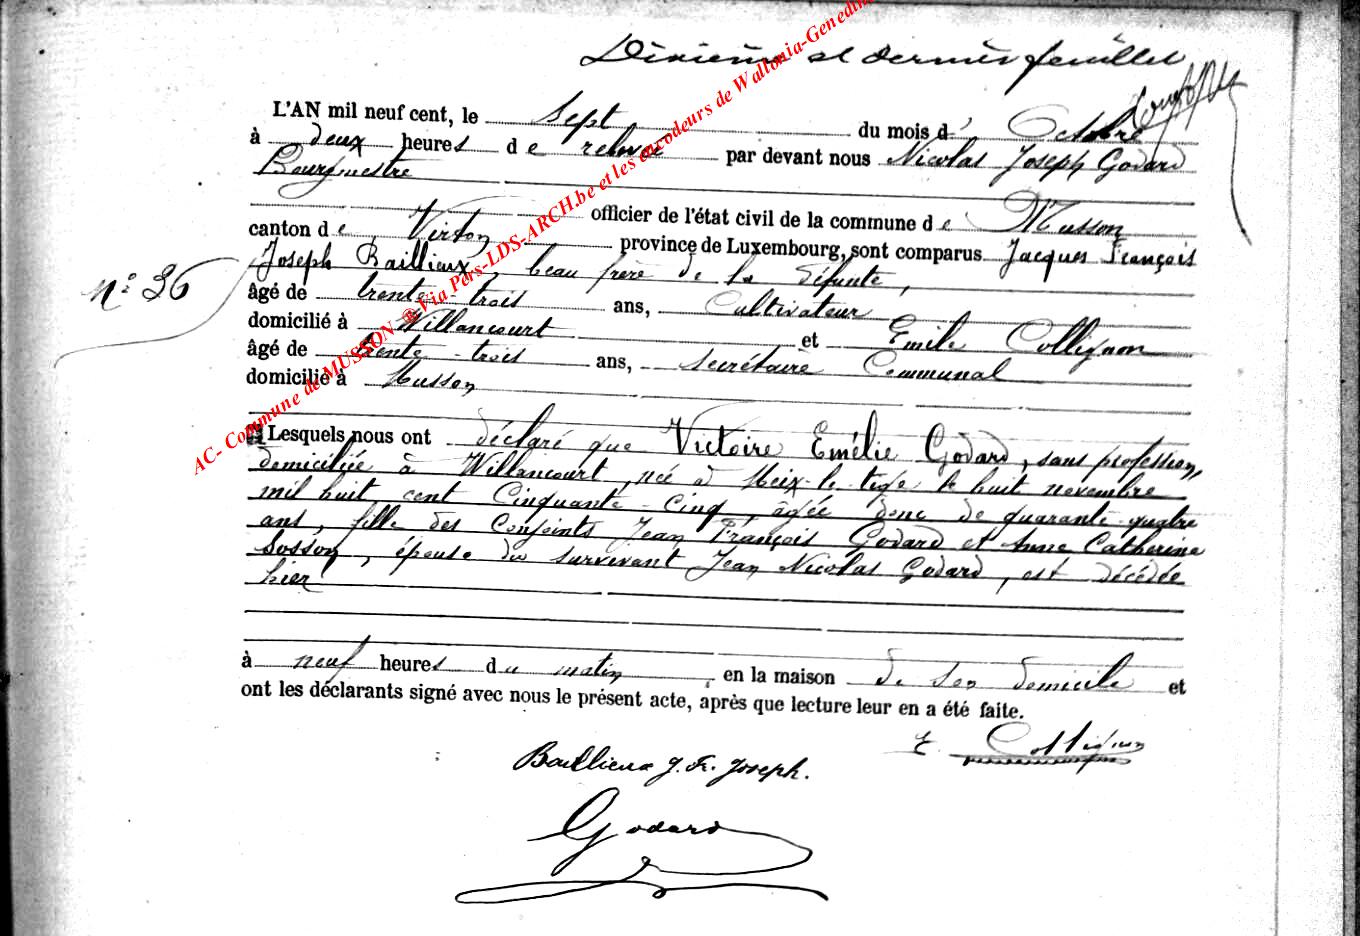 Dixième et dernier feuillet
L'AN mil neuf cent, le sept du mois d' Octobre
à deux heures de relevée par devant nous Nicolas Joseph Godard
Bourgmestre
officier de l'état civil de la commune de Musson
canton de Virton province de Luxembourg, sont comparus Jacques François
Joseph Baillieux, beau frère de la défunte,
n° 36
âgé de trente-trois ans, Cultivateur
domicilié à Willancourt et Emile Collignon
âgé de trente-trois ans, secrétaire Communal
domicilié à Musson
Lesquels nous ont déclaré que Victoire Emélie Godard, sans profession,
domiciliée à Willancourt, née à Meix-le-tige le huit novembre
mil huit cent Cinquante-Cinq, âgée donc de quarante-quatre
ans, fille des Conjoints Jean François Godard et Anne Catherine
Sosson, épouse du survivant Jean Nicolas Godard, est décédée
hier
à neuf heures du matin, en la maison de son domicile et
ont les déclarants signé avec nous le présent acte, après que lecture leur en a été faite.
E. Collignon
Baillieux J. Fr. Joseph.
Godard
AC- Commune de MUSSON ®Via Pers-LDS-ARCH.be et les encodeurs de Wallonia-Genedin